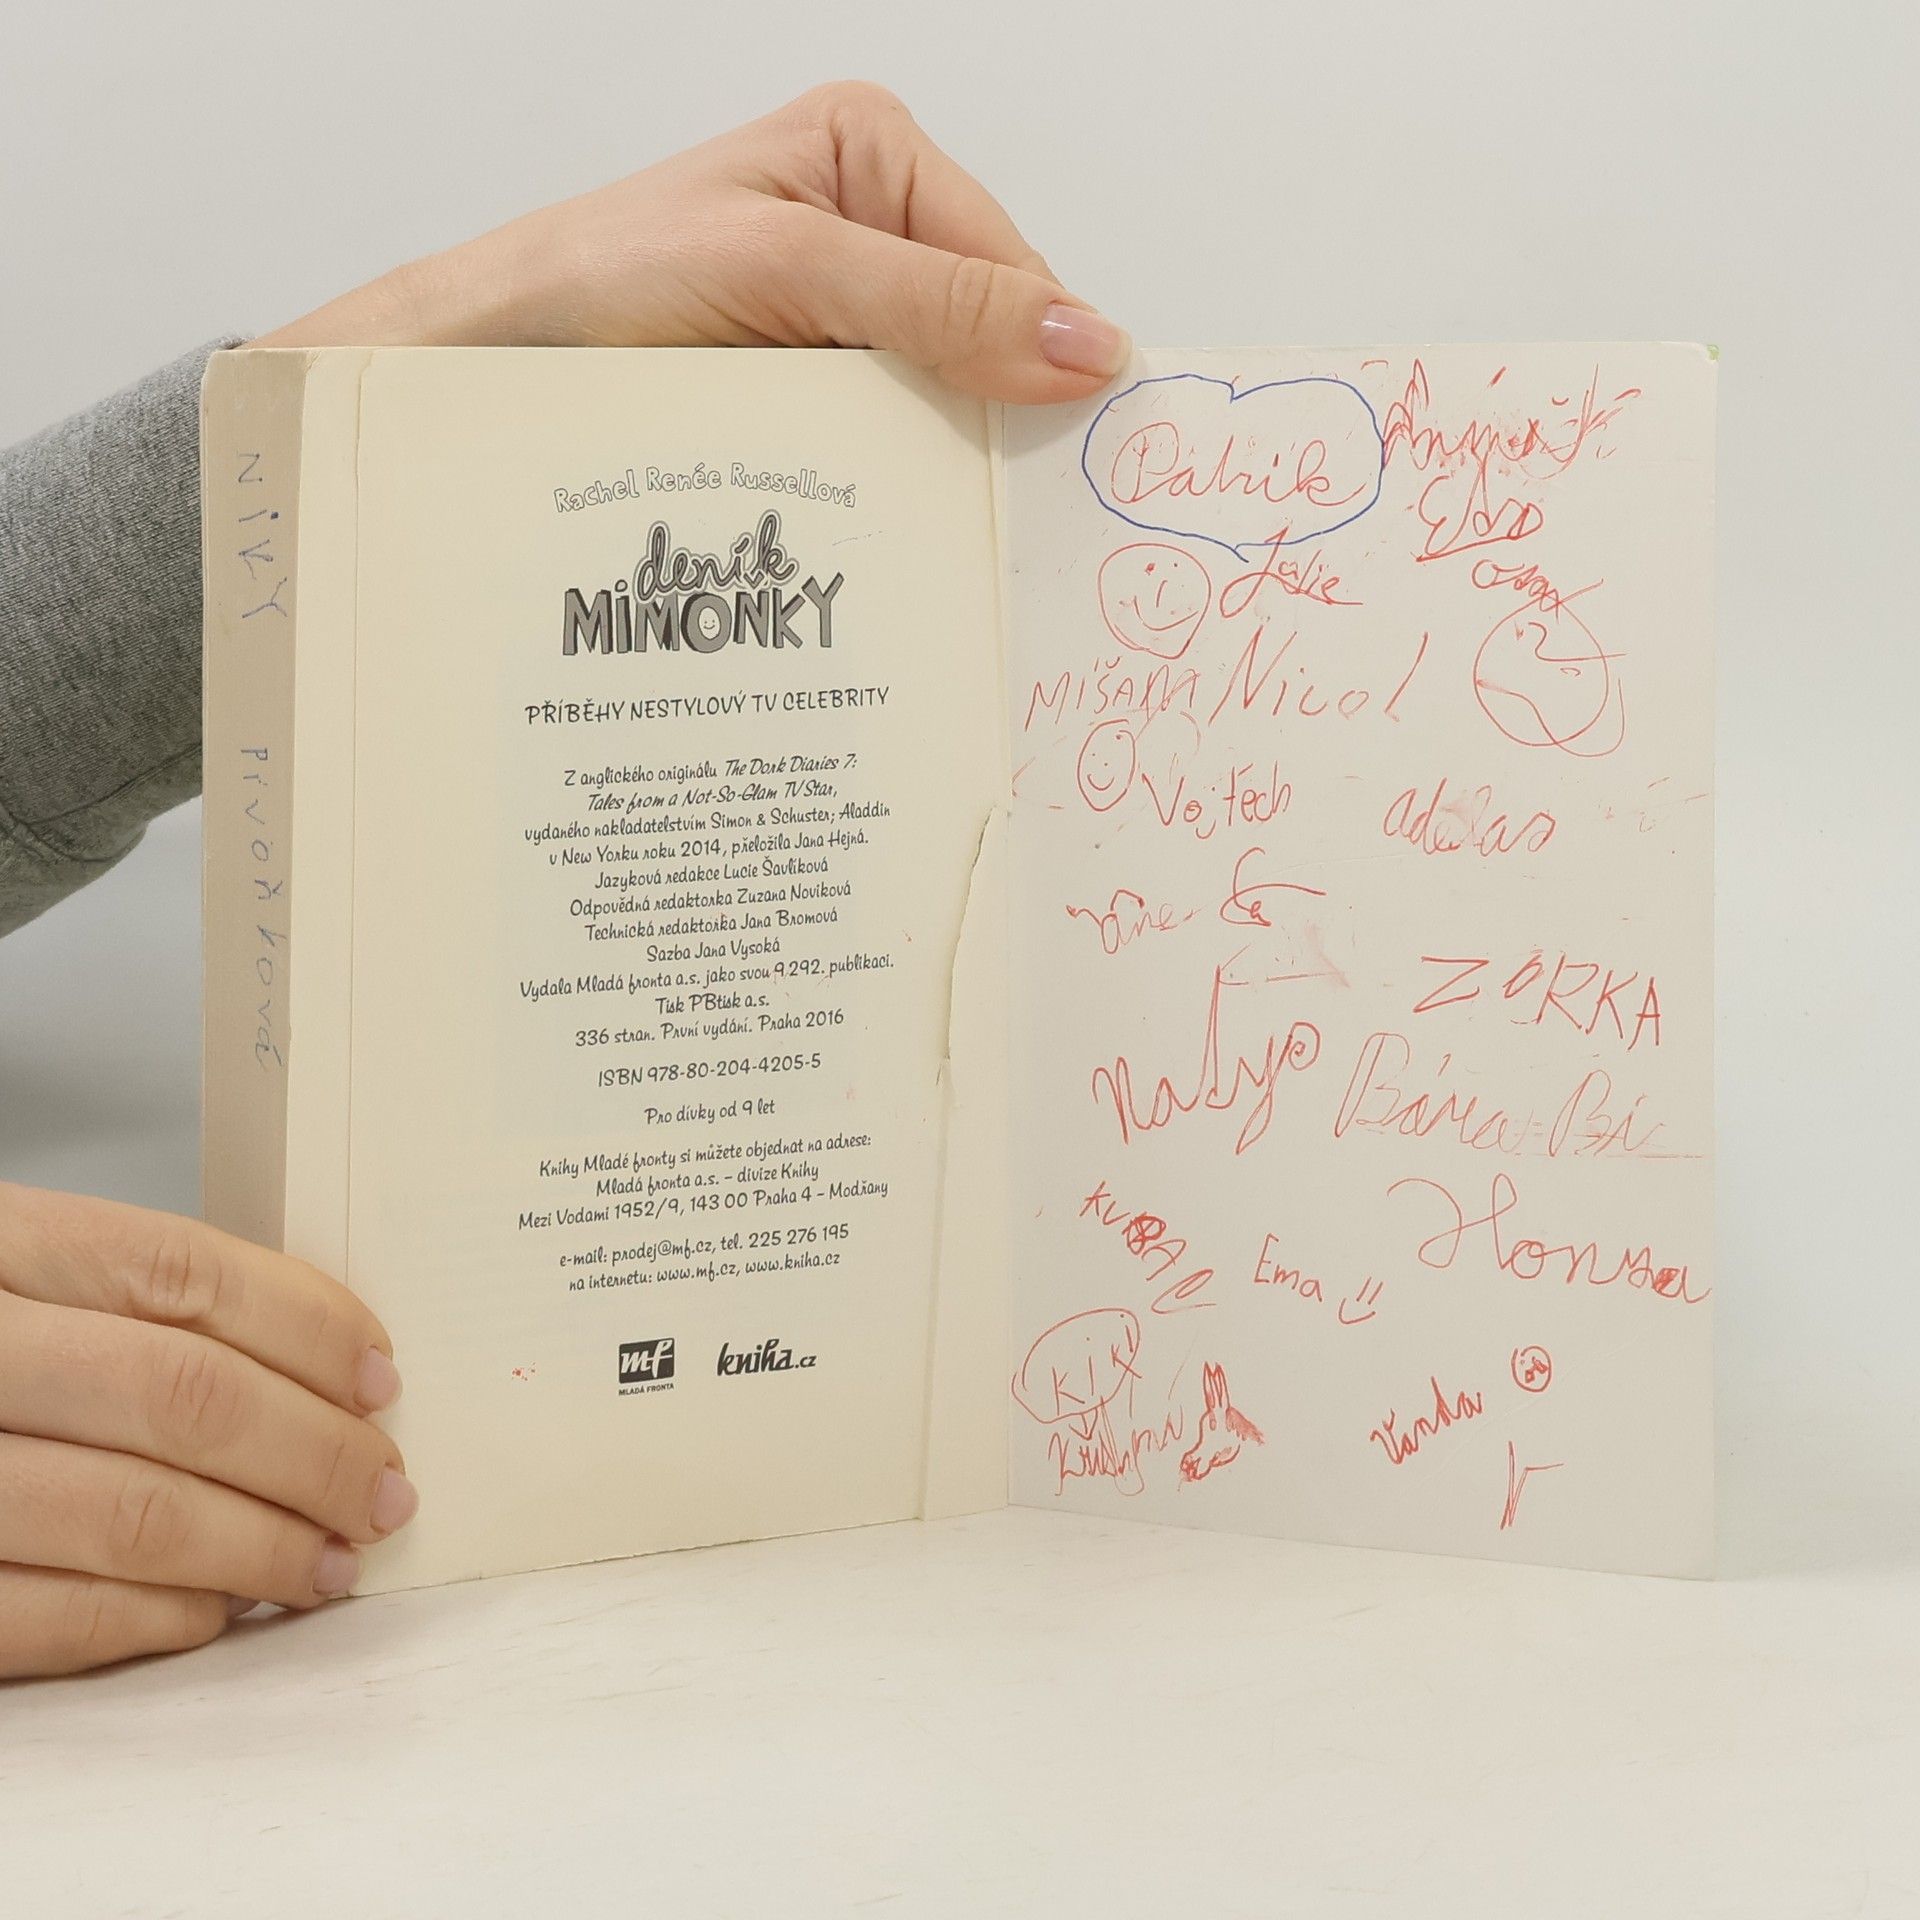 NIKY Pivoňková
Rachel Renée Russellová
deník
MIMOŇKY
PŘÍBĚHY NESTYLOVÝ TV CELEBRITY
Z anglického originálu The Dork Diaries 7:
Tales from a Not-So-Glam TV Star,
vydaného nakladatelstvím Simon & Schuster; Aladdin
v New Yorku roku 2014, přeložila Jana Hejná.
Jazyková redakce Lucie Šavlíková
Odpovědná redaktorka Zuzana Noviková
Technická redaktorka Jana Bromová
Sazba Jana Vysoká
Vydala Mladá fronta a.s. jako svou 9 292. publikaci.
Tisk PBtisk a.s.
336 stran. První vydání. Praha 2016
ISBN 978-80-204-4205-5
Pro dívky od 9 let
Knihy Mladé fronty si můžete objednat na adrese:
Mladá fronta a.s. – divize Knihy
Mezi Vodami 1952/9, 143 00 Praha 4 – Modřany
e-mail: prodej@mf.cz, tel. 225 276 195
na internetu: www.mf.cz, www.kniha.cz
mf
MLADÁ FRONTA
kniha.cz
Patrik
Julie
Nicol
Vojtěch
ZORKA
Bára Bi
Honza
Ema
KiKi
Vanda